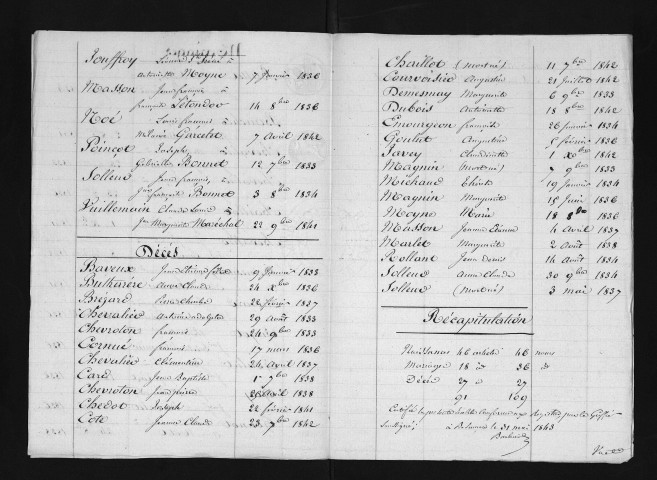 Jouffroy
Antoinette Moyne 7 janvier 1836
Masson Jean françois à
françoise Létondor 14 8bre 1836
Noé Louis françois à
Mélanie Garelet 7 avril 1842
Poinçot Joseph à
Gabrielle Bonnet 12 7bre 1833
Solleus Jean françois à
Jne françoise Bonnet 3 8bre 1834
Vuillemain Claude Louis à
Jne Marguerite Maréchal 22 9bre 1841
Décès
Baveux 9 janvier 1833
Buthiaux Anne Claude 24 Xbre 1836
Brégard 22 février 1837
Chevalier 29 août 1833
Chevroton françois 24 9bre 1833
Cornué françois 17 mars 1836
Chevalier Clémentine 24 avril 1837
Card Jean Baptiste 1 7bre 1838
Chevroton Jean pierre 26 avril 1838
Chedot Joseph 22 février 1841
Cote Jeanne Claude 23 7bre 1842
Chaillot (mort né) 11 7bre 1842
Courvoisier Augustin 21 juillet 1842
Demesmay Marguerite 6 9bre 1833
Dubois Antoinette 18 8bre 1842
Enourgeon françoise 26 janvier 1834
Goulut Augustin 5 février 1836
Javey Claude 1 Xbre 1842
Magnin (mort né) 7 9bre 1833
Michaud 19 janvier 1834
Magnin Marguerite 15 juin 1836
Moyne Marie 18 8bre 1836
Masson Jeanne 4 avril 1837
Marlet Marguerite 2 août 1838
Rolland Jean Denis 14 août 1834
Solleus Anne Claude 30 9bre 1834
Solleus (mort né) 3 mai 1837
Récapitulation
Naissances 46 actes 46 noms
Mariages 18 id 36 id
Décès 27 27
91 109
31 mai 1843